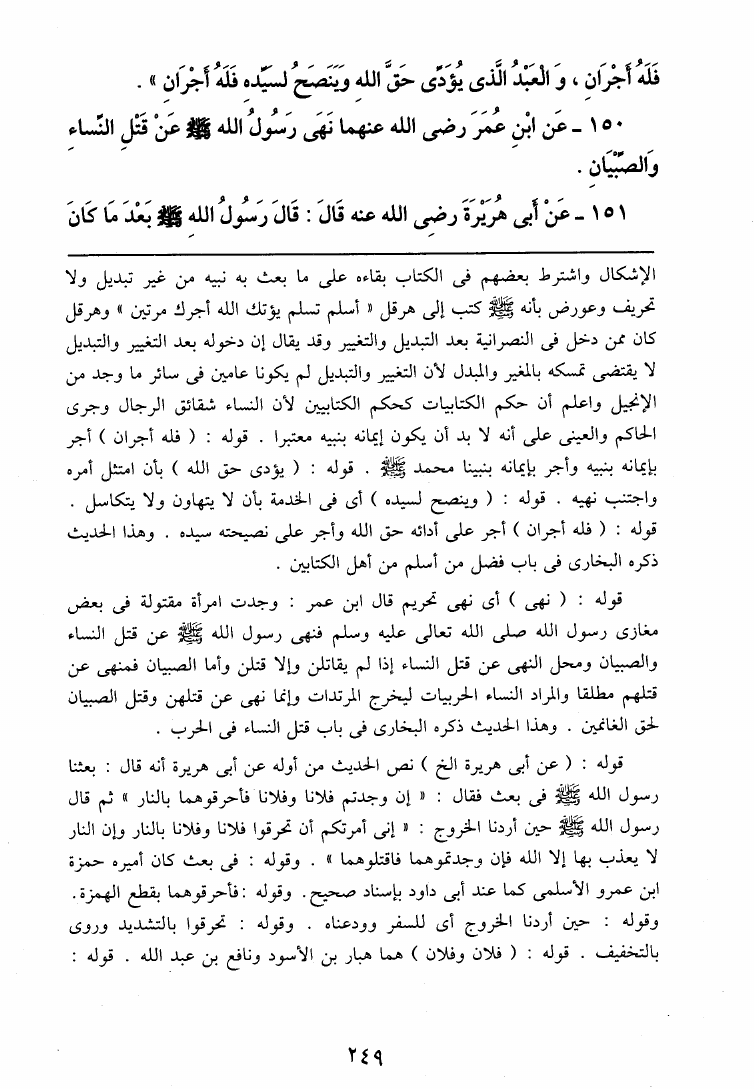 فَلَهُ أَجْرَانِ ، وَ الْعَبْدُ الَّذى يُؤَدِّى حَقَّ اللهِ وَيَنصَحُ لسَيِّده فَلَهُ أَجْرَانِ » .
١٥٠ ـ عَن ابْنِ عُمَرَ رضى الله عنهما نَهَى رَسُولُ الله ﷺ عَنْ قَتْلِ النِّساءِ
وَالصِّبْيَانِ .
١٥١ ـ عَنْ أَبى هُرَيْرَةَ رضى الله عنه قَالَ : قَالَ رَسُولُ اللهِ ﷺ بَعْدَ مَا كَانَ
الإشكال واشترط بعضهم فى الكتاب بقاءه على ما بعث به نبيه من غير تبديل ولا
تحريف وعورض بأنه ﷺ كتب إلى هرقل « أسلم تسلم يؤتك الله أجرك مرتين » وهرقل
كان ممن دخل فى النصرانية بعد التبديل والتغيير وقد يقال إن دخوله بعد التغيير والتبديل
لا يقتضى تمسكه بالمغير والمبدل لأن التغيير والتبديل لم يكونا عامين فى سائر ما وجد من
الإنجيل واعلم أن حكم الكتابيات كحكم الكتابيين لأن النساء شقائق الرجال وجرى
الحاكم والعينى على أنه لا بد أن يكون إيمانه بنبيه معتبرا . قوله : ( فله أجران ) أجر
بإيمانه بنبيه وأجر بإيمانه بنبينا محمد ﷺ . قوله : ( يؤدى حق الله ) بأن امتثل أمره
واجتنب نهيه . قوله : ( وينصح لسيده ) أى فى الخدمة بأن لا يتهاون ولا يتكاسل .
قوله : ( فله أجران ) أجر على أدائه حق الله وأجر على نصيحته سيده . وهذا الحديث
ذكره البخارى فى باب فضل من أسلم من أهل الكتابين .
قوله : ( نهى ) أى نهى تحريم قال ابن عمر : وجدت امرأة مقتولة فى بعض
مغازى رسول الله صلى الله تعالى عليه وسلم فنهى رسول الله ﷺ عن قتل النساء
والصبيان ومحل النهى عن قتل النساء إذا لم يقاتلن وإلا قتلن وأما الصبيان فمنهى عن
قتلهم مطلقا والمراد النساء الحربيات ليخرج المرتدات وإنما نهى عن قتلهن وقتل الصبيان
لحق الغانمين . وهذا الحديث ذكره البخارى فى باب قتل النساء فى الحرب .
قوله : ( عن أبى هريرة الخ ) نص الحديث من أوله عن أبى هريرة أنه قال : بعثنا
رسول الله ﷺ فى بعث فقال : « إن وجدتم فلانا وفلانا فأحرقوهما بالنار » ثم قال
رسول الله ﷺ حين أردنا الخروج : « إنى أمرتكم أن تحرقوا فلانا وفلانا بالنار وإن النار
لا يعذب بها إلا الله فإن وجدتموهما فاقتلوهما » . وقوله : فى بعث كان أميره حمزة
ابن عمرو الأسلمى كما عند أبى داود بإسناد صحيح. وقوله :فأحرقوهما بقطع الهمزة.
وقوله : حين أردنا الخروج أى للسفر وودعناه . وقوله : تحرقوا بالتشديد وروى
بالتخفيف . قوله : ( فلان وفلان ) هما هبار بن الأسود ونافع بن عبد الله . قوله :
٢٤٩